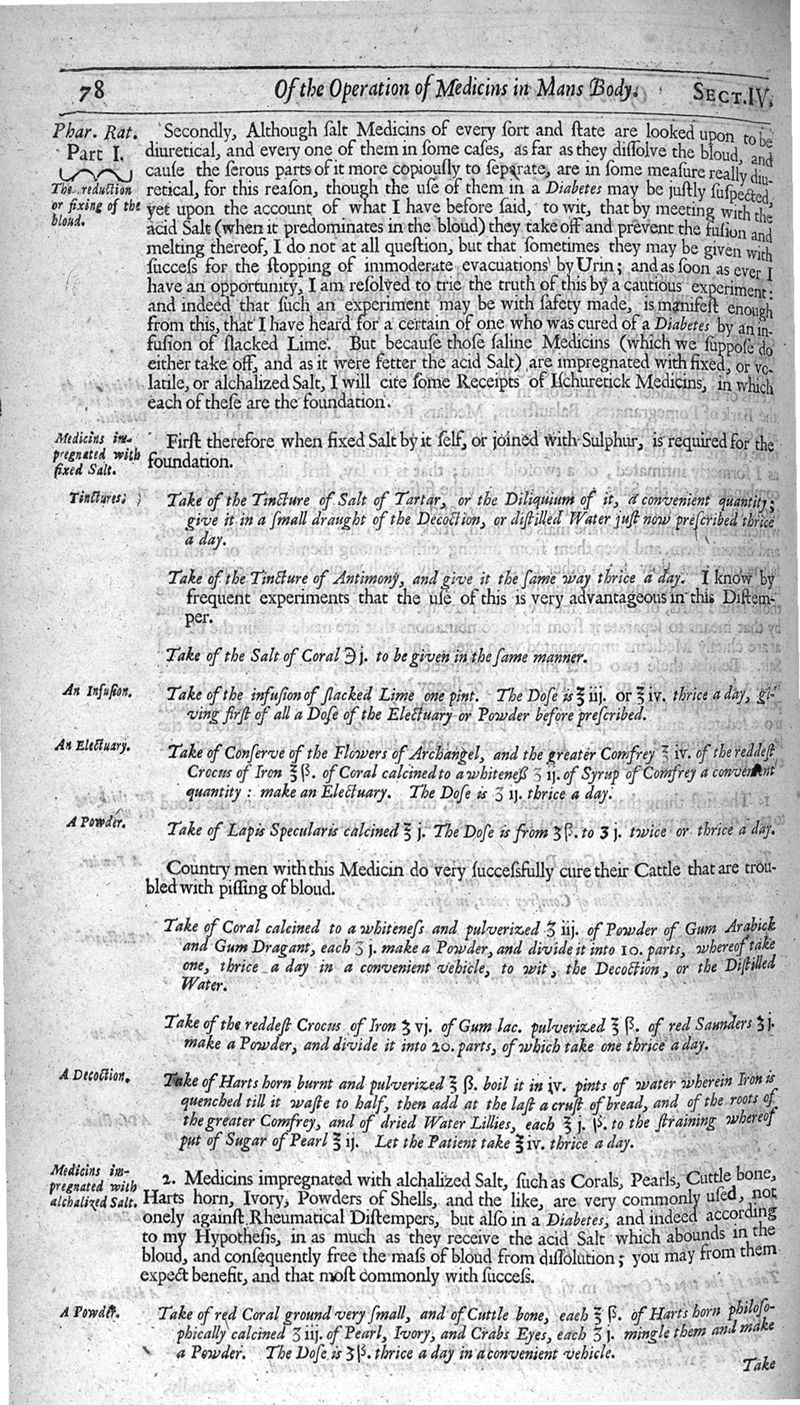 78 Of the Operation of Medicins in Mans Body. SECT.IV.
Phar. Rat.
Part I.
The reduction
or fixing of the
bloud.
Secondly, Although ſalt Medicins of every ſort and ſtate are looked upon to be
diuretical, and every one of them in ſome caſes, as far as they diſſolve the bloud, and
cauſe the ſerous parts of it more copiouſly to ſeparate, are in ſome meaſure really diu-
retical, for this reaſon, though the uſe of them in a Diabetes may be juſtly ſuſpected,
yet upon the account of what I have before ſaid, to wit, that by meeting with the
acid Salt (when it predominates in the bloud) they take off and prevent the fuſion and
melting thereof, I do not at all queſtion, but that ſometimes they may be given with
ſucceſs for the ſtopping of immoderate evacuations by Urin; and as ſoon as ever I
have an opportunity, I am reſolved to trie the truth of this by a cautious experiment:
and indeed that ſuch an experiment may be with ſafety made, is manifeſt enough
from this, that I have heard for a certain of one who was cured of a Diabetes by an in-
fuſion of ſlacked Lime. But becauſe thoſe ſaline Medicins (which we ſuppoſe do
either take off, and as it were fetter the acid Salt) are impregnated with fixed, or vo-
latile, or alchalized Salt, I will cite ſome Receipts of Iſchuretick Medicins, in which
each of theſe are the foundation.
Medicins im-
pregnated with
fixed Salt.
Firſt therefore when fixed Salt by it ſelf, or joined with Sulphur, is required for the
foundation.
Tinctures.
Take of the Tincture of Salt of Tartar, or the Diliquium of it, a convenient quantity;
give it in a ſmall draught of the Decoction, or diſtilled Water juſt now preſcribed thrice
a day.
Take of the Tincture of Antimony, and give it the ſame way thrice a day. I know by
frequent experiments that the uſe of this is very advantageous in this Diſtem-
per.
Take of the Salt of Coral ℈ j. to be given in the ſame manner.
An Infuſion.
Take of the infuſion of ſlacked Lime one pint. The Doſe is ℥ iij. or ℥ iv. thrice a day, gi-
ving firſt of all a Doſe of the Electuary or Powder before preſcribed.
An Electuary.
Take of Conſerve of the Flowers of Archangel, and the greater Comfrey ℥ iv. of the reddeſt
Crocus of Iron ℥ ß. of Coral calcined to a whiteneß ʒ ij. of Syrup of Comfrey a convenient
quantity: make an Electuary. The Doſe is ʒ ij. thrice a day.
A Powder.
Take of Lapis Specularis calcined ℥ j. The Doſe is from ʒ ß. to ʒ j. twice or thrice a day.
Country men with this Medicin do very ſucceſsfully cure their Cattle that are trou-
bled with piſſing of bloud.
Take of Coral calcined to a whiteneſs and pulverized ʒ iij. of Powder of Gum Arabick
and Gum Dragant, each ʒ j. make a Powder, and divide it into 10. parts, whereof take
one, thrice a day in a convenient vehicle, to wit, the Decoction, or the Diſtilled
Water.
Take of the reddeſt Crocus of Iron ʒ vj. of Gum lac. pulverized ℥ ß. of red Saunders ʒ j.
make a Powder, and divide it into 20. parts, of which take one thrice a day.
A Decoction.
Take of Harts horn burnt and pulverized ℥ ß. boil it in iv. pints of water wherein Iron is
quenched till it waſte to half, then add at the laſt a cruſt of bread, and of the roots of
the greater Comfrey, and of dried Water Lillies, each ℥ j. ß. to the ſtraining whereof
put of Sugar of Pearl ℥ ij. Let the Patient take ℥ iv. thrice a day.
Medicins im-
pregnated with
alchalized Salt.
2. Medicins impregnated with alchalized Salt, ſuch as Corals, Pearls, Cuttle bone,
Harts horn, Ivory, Powders of Shells, and the like, are very commonly uſed, not
onely againſt Rheumatical Diſtempers, but alſo in a Diabetes, and indeed according
to my Hypotheſis, in as much as they receive the acid Salt which abounds in the
bloud, and conſequently free the maſs of bloud from diſſolution; you may from them
expect benefit, and that moſt commonly with ſucceſs.
A Powder.
Take of red Coral ground very ſmall, and of Cuttle bone, each ℥ ß. of Harts horn philoſo-
phically calcined ʒ iij. of Pearl, Ivory, and Crabs Eyes, each ʒ j. mingle them and make
a Powder. The Doſe is ʒ ß. thrice a day in a convenient vehicle.
Take